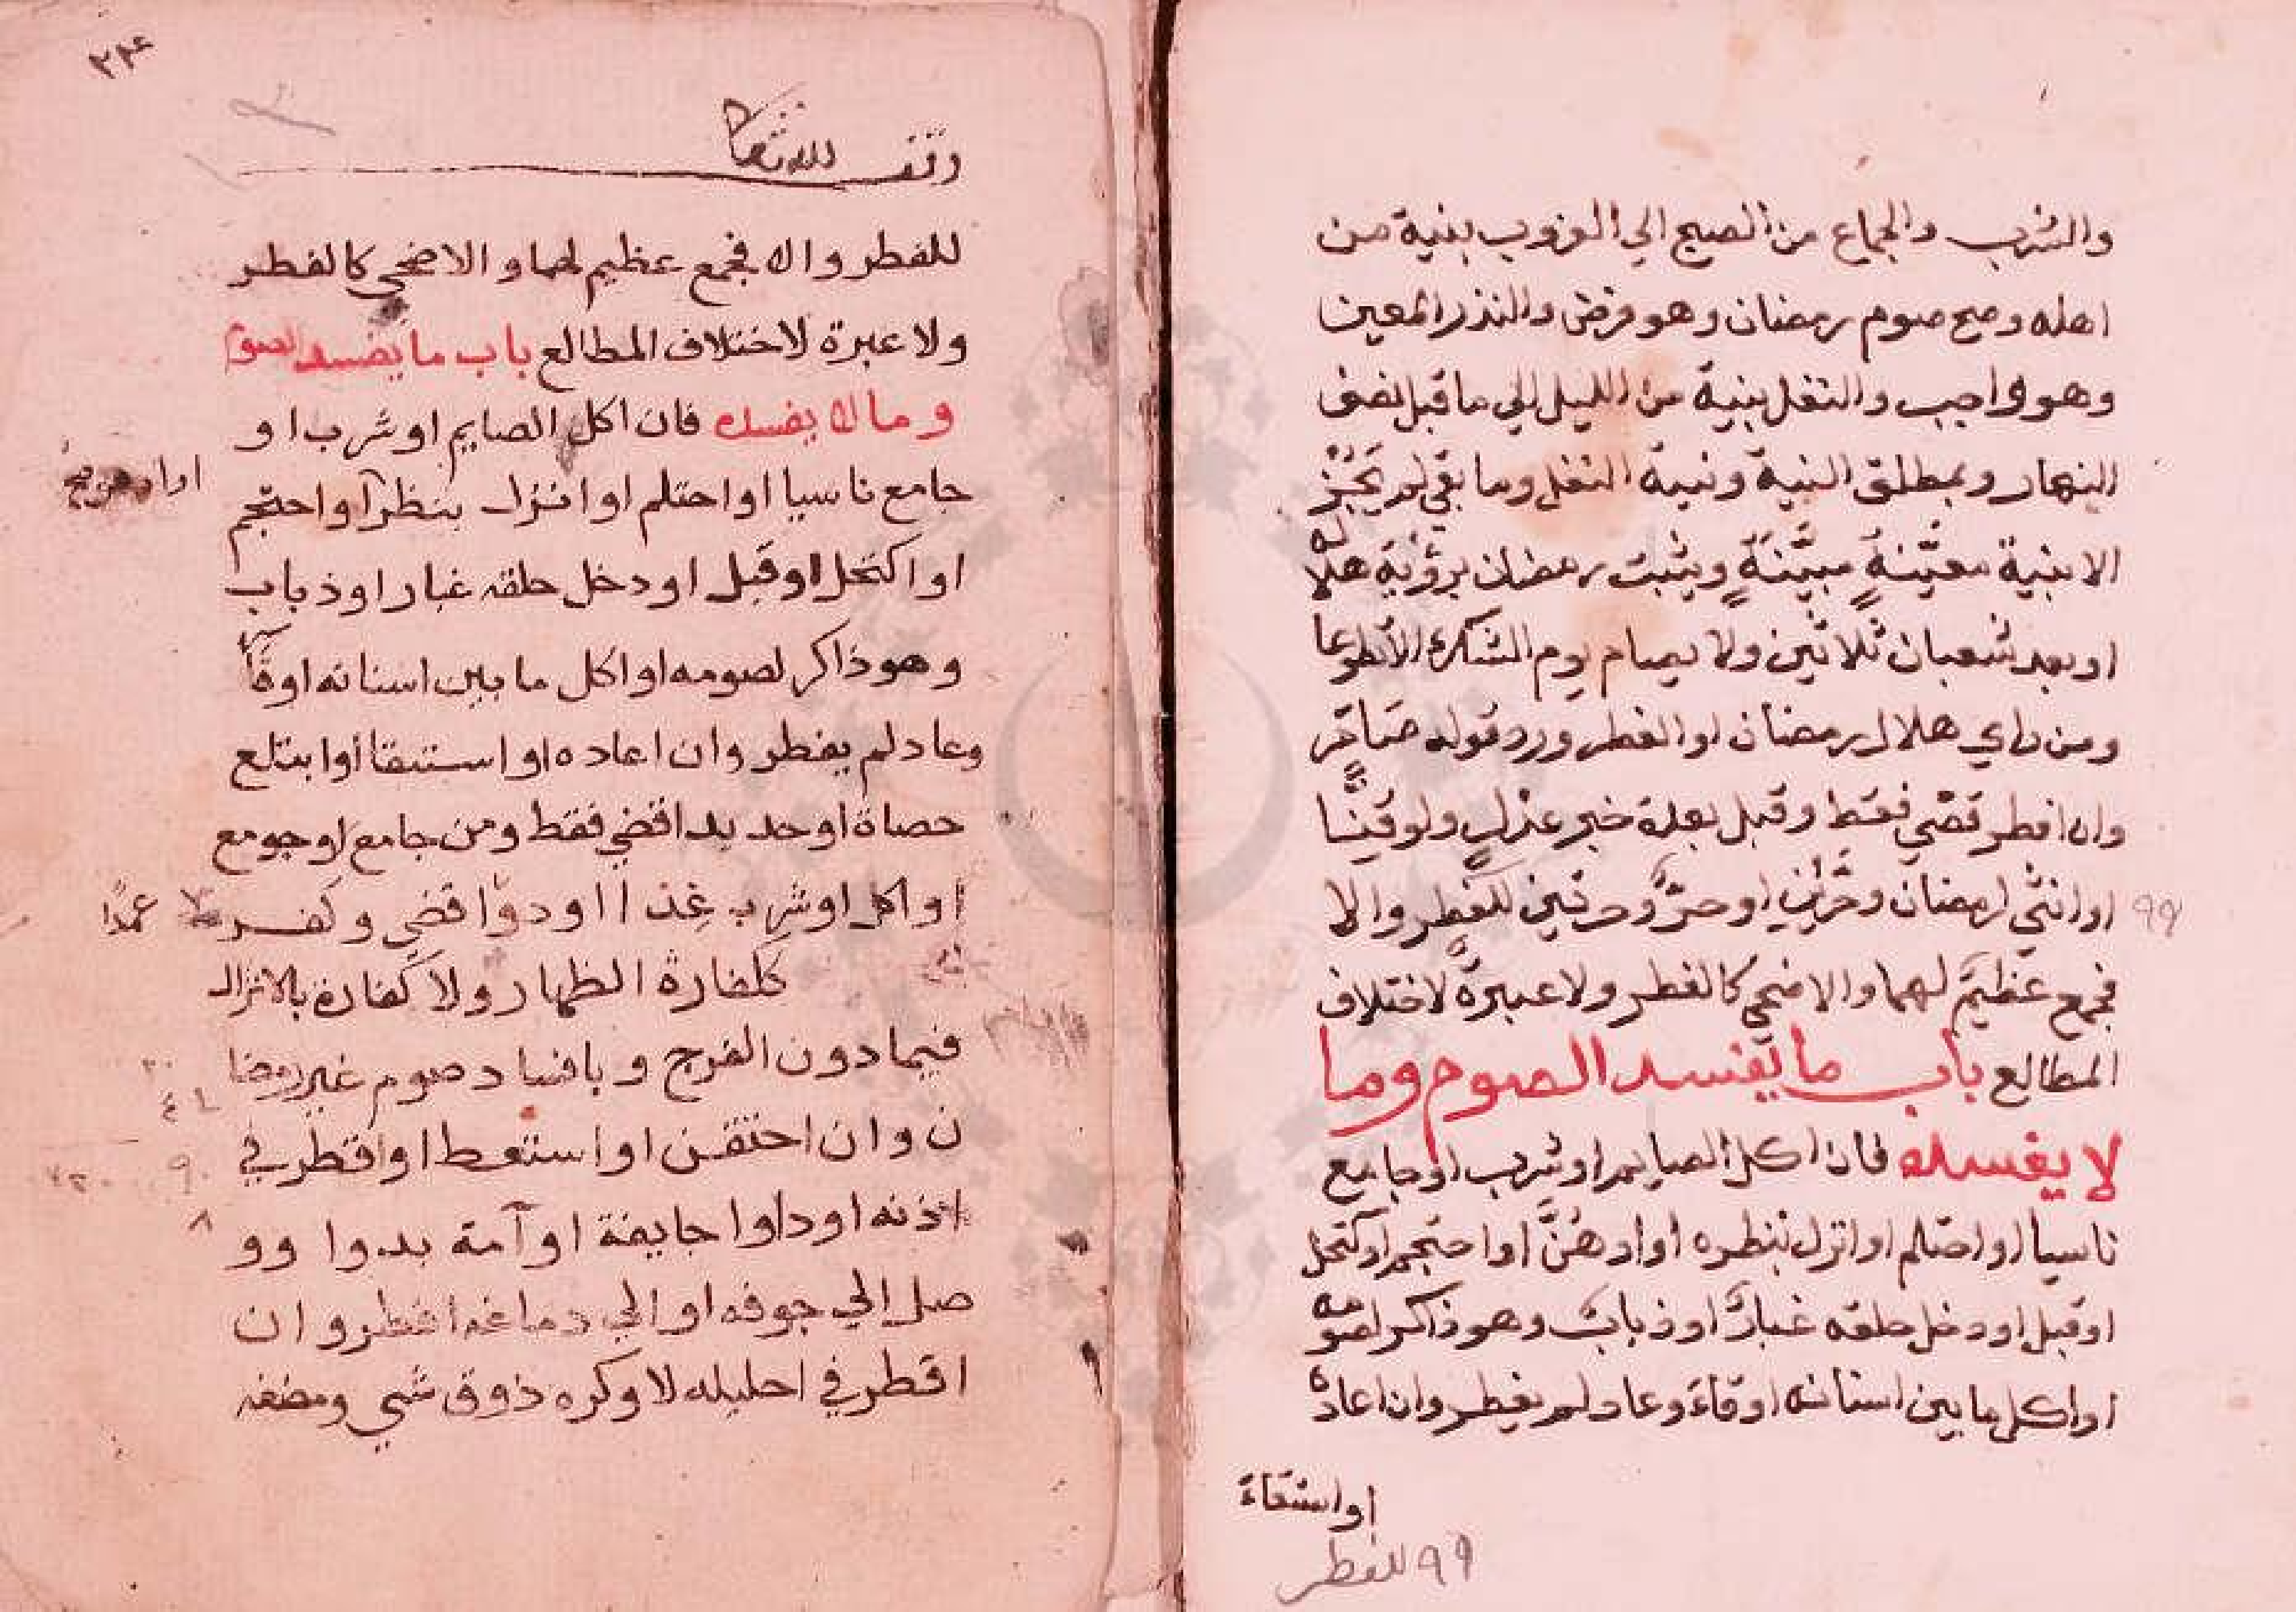 والشرب والجماع من الصبح الي الغروب بنية من
اهله وصح صوم رمضان وهو فرض والنذر المعين
وهو واجب والنفل بنية من الليل الي ما قبل نصف
النهار وبمطلق النية ونية النفل وما بقي لم يَجُزْ
الا بنية معيّنةٍ مبيّتةٍ ويثبت رمضان برؤية هلاله
او بعد شعبان ثلاثين ولا يصام يوم الشك الا تطوعا
ومن راي هلال رمضان او الفطر ورد قوله صَامَ
وان افطر قضي فقط وقبل بعلة خبر عدلٍ ولو قِنًّا
او انثي لرمضان وحُرَّين او حرٌّ وحرتين للفطر والا
فجمع عظيم لهما والاضحي كالفطر ولا عبرة لاختلاف
المطالع باب ما يفسد الصوم وما
لا يفسده فان اكل الصايم او شرب او جامع
ناسيا او احتلم او انزل بنظره او ادهنَّ او احتجم او كتحل
او قبل او دخل حلقه غبارٌ او ذباب وهو ذاكر لصومه
او اكل ما بين اسنانه او قاءَ وعاد لم يفطر وان اعاده
او استقاءَ
٩٩ للفطر
٩٩
٢٣٤
وقف لله تعالى
للفطر والا فجمع عظيم لهما والاضحي كالفطر
ولا عبرة لاختلاف المطالع باب ما يفسد الصوم
وما لا يفسده فان اكل الصايم او شرب او
جامع ناسيا او احتلم او انزل بنظر او احتجم
او ادهن صح
او اكتحل او قبل او دخل حلقه غبار او ذباب
وهو ذاكر لصومه او اكل ما بين اسنانه او قآء
وعاد لم يفطر وان اعاده او استقا او ابتلع
حصاة او حديدا قضي فقط ومن جامع او جومع
او اكل او شرب غذاا او دوا قضي وكفر
عمدًا
ككفارة الظهار ولا كفارة بالانزال
فيما دون الفرج وبافساد صوم غير رمضا
ن وان احتقن او استعط او اقطر في
اذنه او داوا جايفة او آمة بدوا وو
صل الي جوفه او الي دماغه افطر وان
اقطر في احليله لا وكره ذوق شي ومضغه